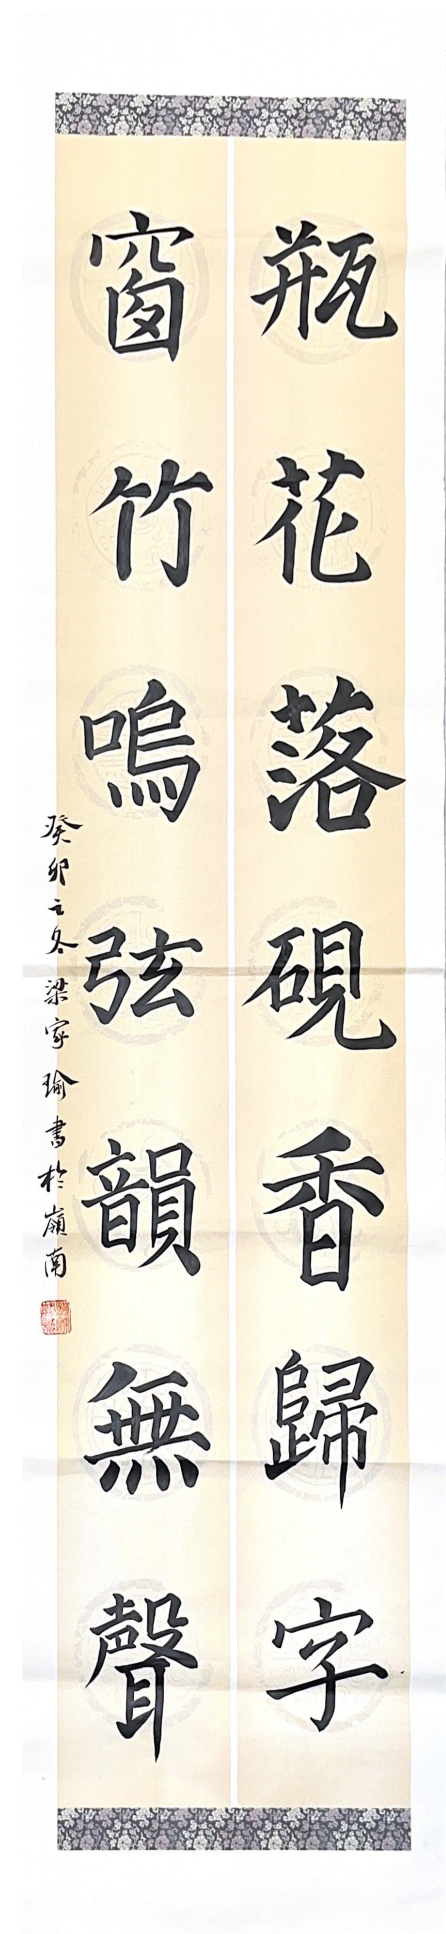 瓶花落硯香歸字
窗竹鳴弦韻無聲
癸卯之冬梁家瑜書於嶺南